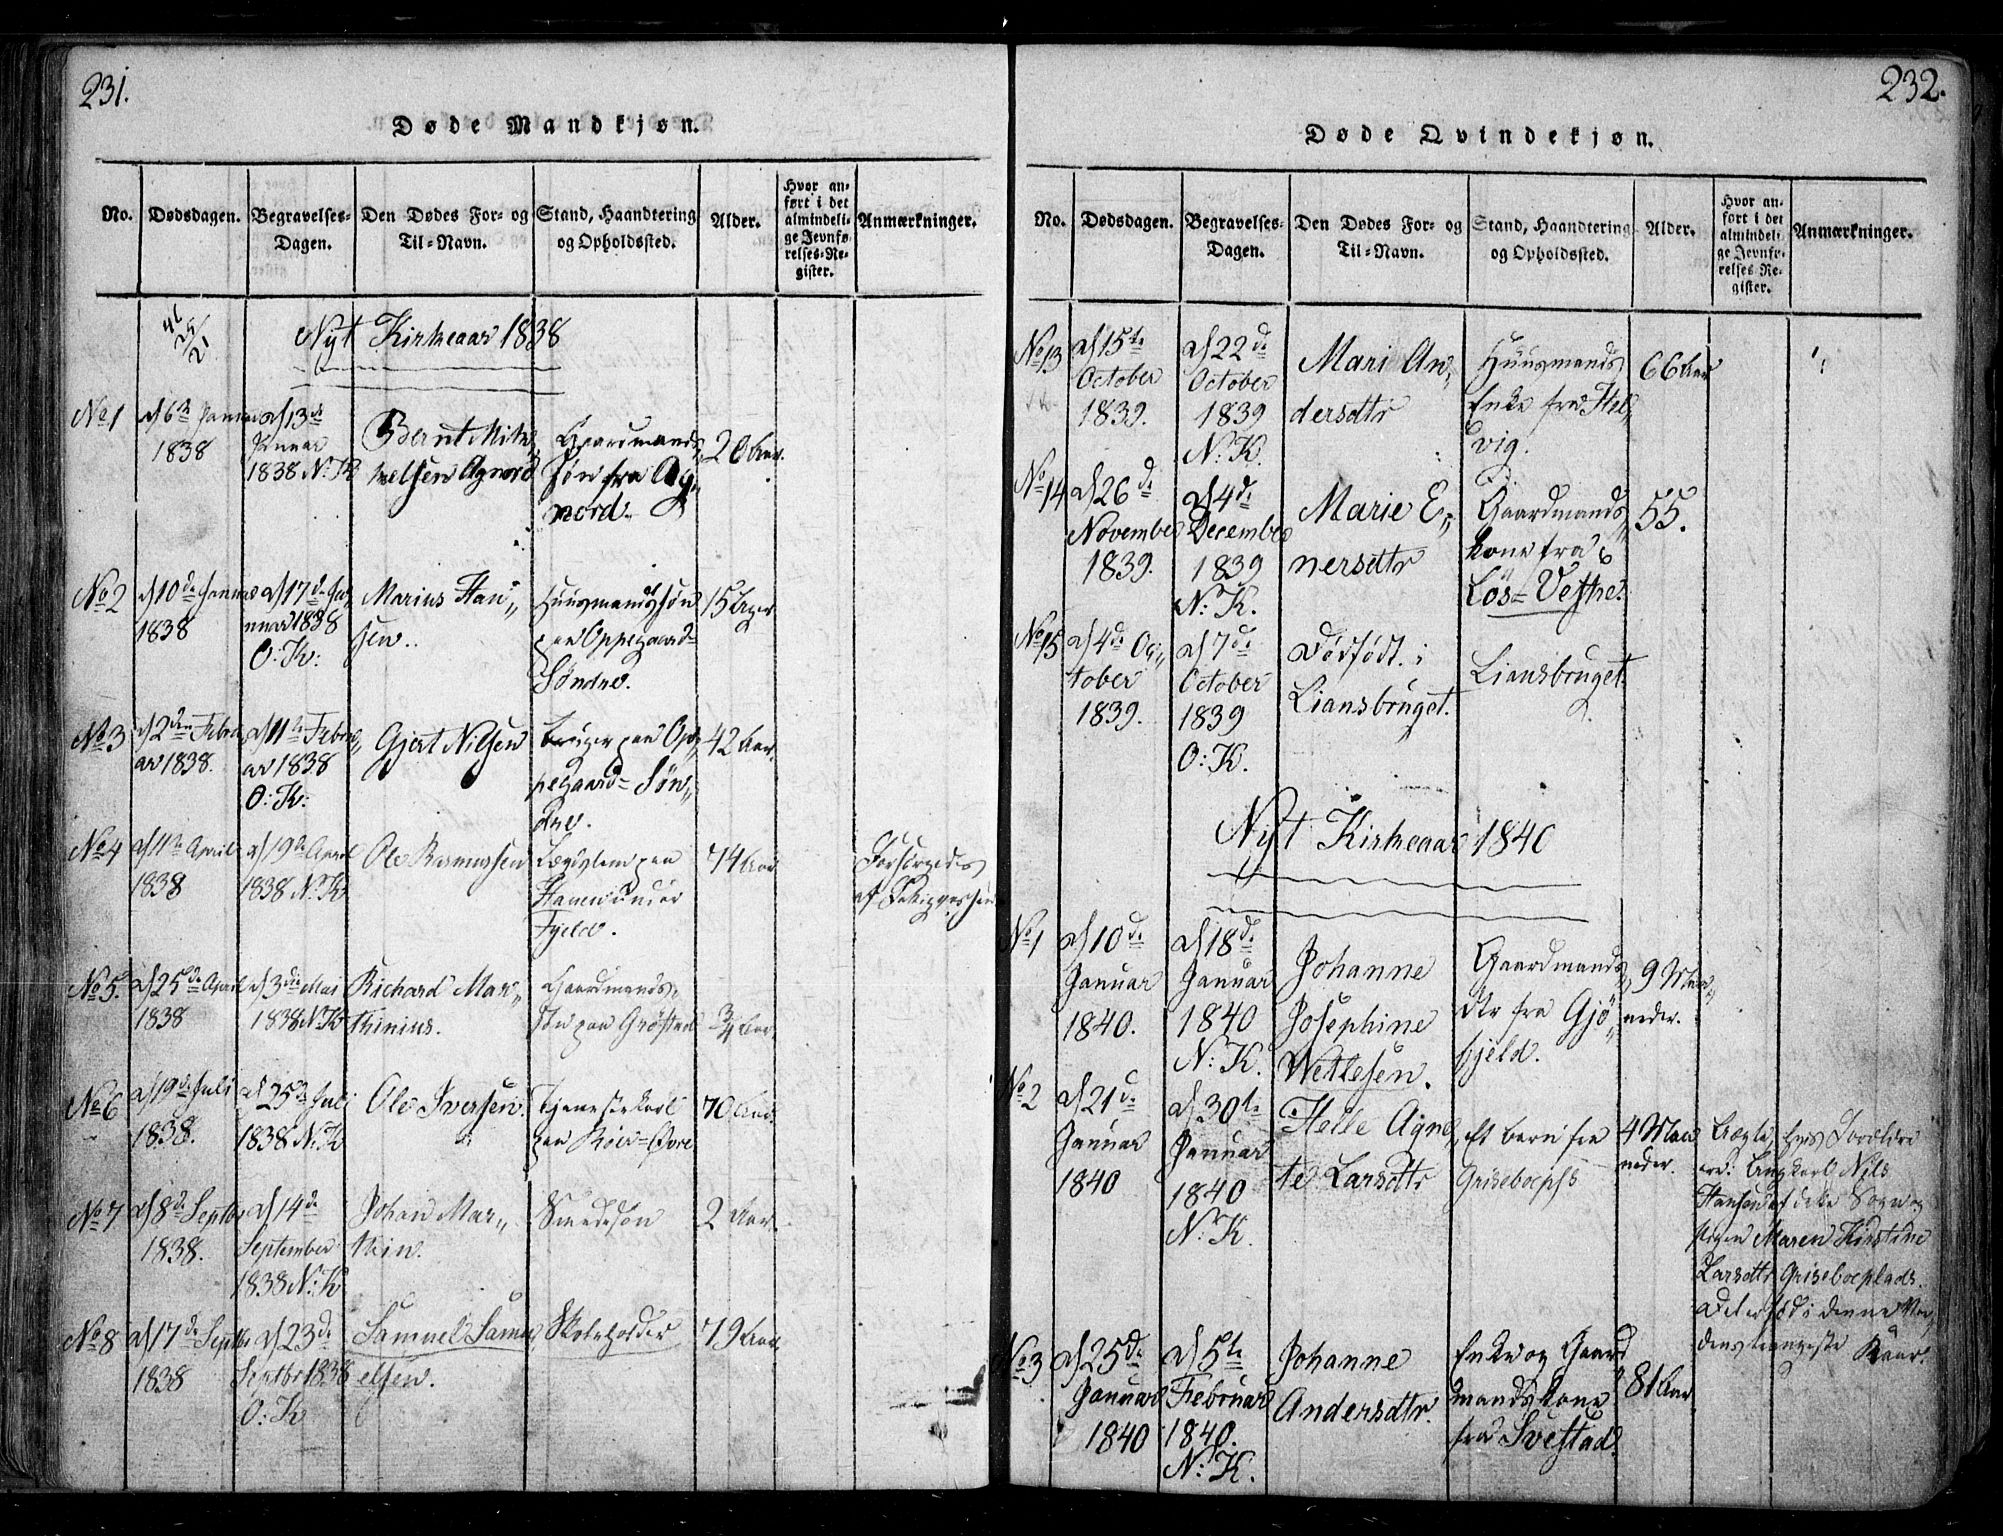 231.
Døde Mandkjøn.
No.
Dødsdagen.
Begravelses-
Dagen.
Den Dødes For- og
Til-Navn.
Stand, Haandtering
og Opholdssted.
Alder.
Hvor an-
ført i det
almindeli-
ge Jevnfø-
relses-Re-
gister.
Anmærkninger.
Nyt Kirkeaar 1838
No 1
d 6te Januar
1838
d 13de
Januar
1838 N. K
Bernt Mik-
kelsen Agnord
Gaardmands
søn fra Ag-
nord.
20 Aar.
No 2
d 10de Januar
1838
d 17de Ja-
nuar 1838
O: K:
Marius Han-
sen.
Huusmandssøn
paa Oppegaard=
Søndre.
15 Uger
No 3
d 2den Febru
ar 1838.
d 11te Febru
ar 1838
O: K:
Gjert Nilsen
Bruger paa Op-
pegaard= Søn-
dre.
42 Aar.
No 4
d 11te April
1838
d 19de April
1838 N. K
Ole Rasmussen
Lægdslem paa
under
Fjeld.
74 Aar
Forsørgedes
af
No 5.
d 25de April
1838
d 3die Mai
1838 N. K
Richard Mar-
thinius.
Gaardmands-
søn paa Grøstad
3/4 Aar.
No 6
d 19de Juli
1838.
d 25de Juli
1838 N. K
Ole Iversen.
Tjenestekarl
paa Røer= Øvre
70 Aar.
No 7
d 8de Septbr
1838.
d 14de
September
1838 N: K
Johan Mar-
thin.
Smedesøn
2 Aar.
No 8
d 17de Septbr
1838
d 23de
Septbr 1838
O: K
Samuel Samu-
elsen.
Skoleholder
79 Aar.
232.
Døde Qvindekjøn.
No.
Dødsdagen.
Begravelses-
Dagen.
Den Dødes For- og
Til-Navn.
Stand, Haandtering
og Opholdssted.
Alder.
Hvor an-
ført i det
almindeli-
ge Jevnfø-
relses Re-
gister.
Anmærkninger.
No 13
d 15te
October
1839.
d 22de
October
1839
N: K.
Mari An-
dersdtr
Huusmands
Enke fra Hel-
vig.
66 Aar
No 14
d 26de
November
1839.
d 4de
December
1839
N: K.
Marie E-
nersdtr
Gaardmands
kone fra
Løs= Vestre.
55.
No 15
d 4de Oc-
tober
1839.
d 7de
October
1839
O: K.
Dødfødt i
Liansbruget.
Liansbruget.
Nyt Kirkeaar 1840
No 1
d 10de
Januar
1840.
d 18de
Januar
1840
N: K.
Johanne
Josephine
Wetlesen.
Gaardmands
dtr fra Gjø-
fjeld.
9 Maa-
neder.
No 2
d 21de
Januar
1840
d 30te
Januar
1840
N: K.
Helle Agne-
te Larsdtr
Et barn fra
Griseboepls
4 Maa
neder.
Uægte, hvis Forældre
ere: Ungkarl Nils
Hansen af dette Sogn og
Pigen Maren Kirstine
Larsdtr Griseboeplads.
Det er født i denne Ver-
dens trangeste Kaar.
No 3
d 25de
Januar
1840
d 5te
Februar
1840.
N: K.
Johanne
Andersdtr.
Enke og Gaard
mandskone
fra Svestad.
81 Aar